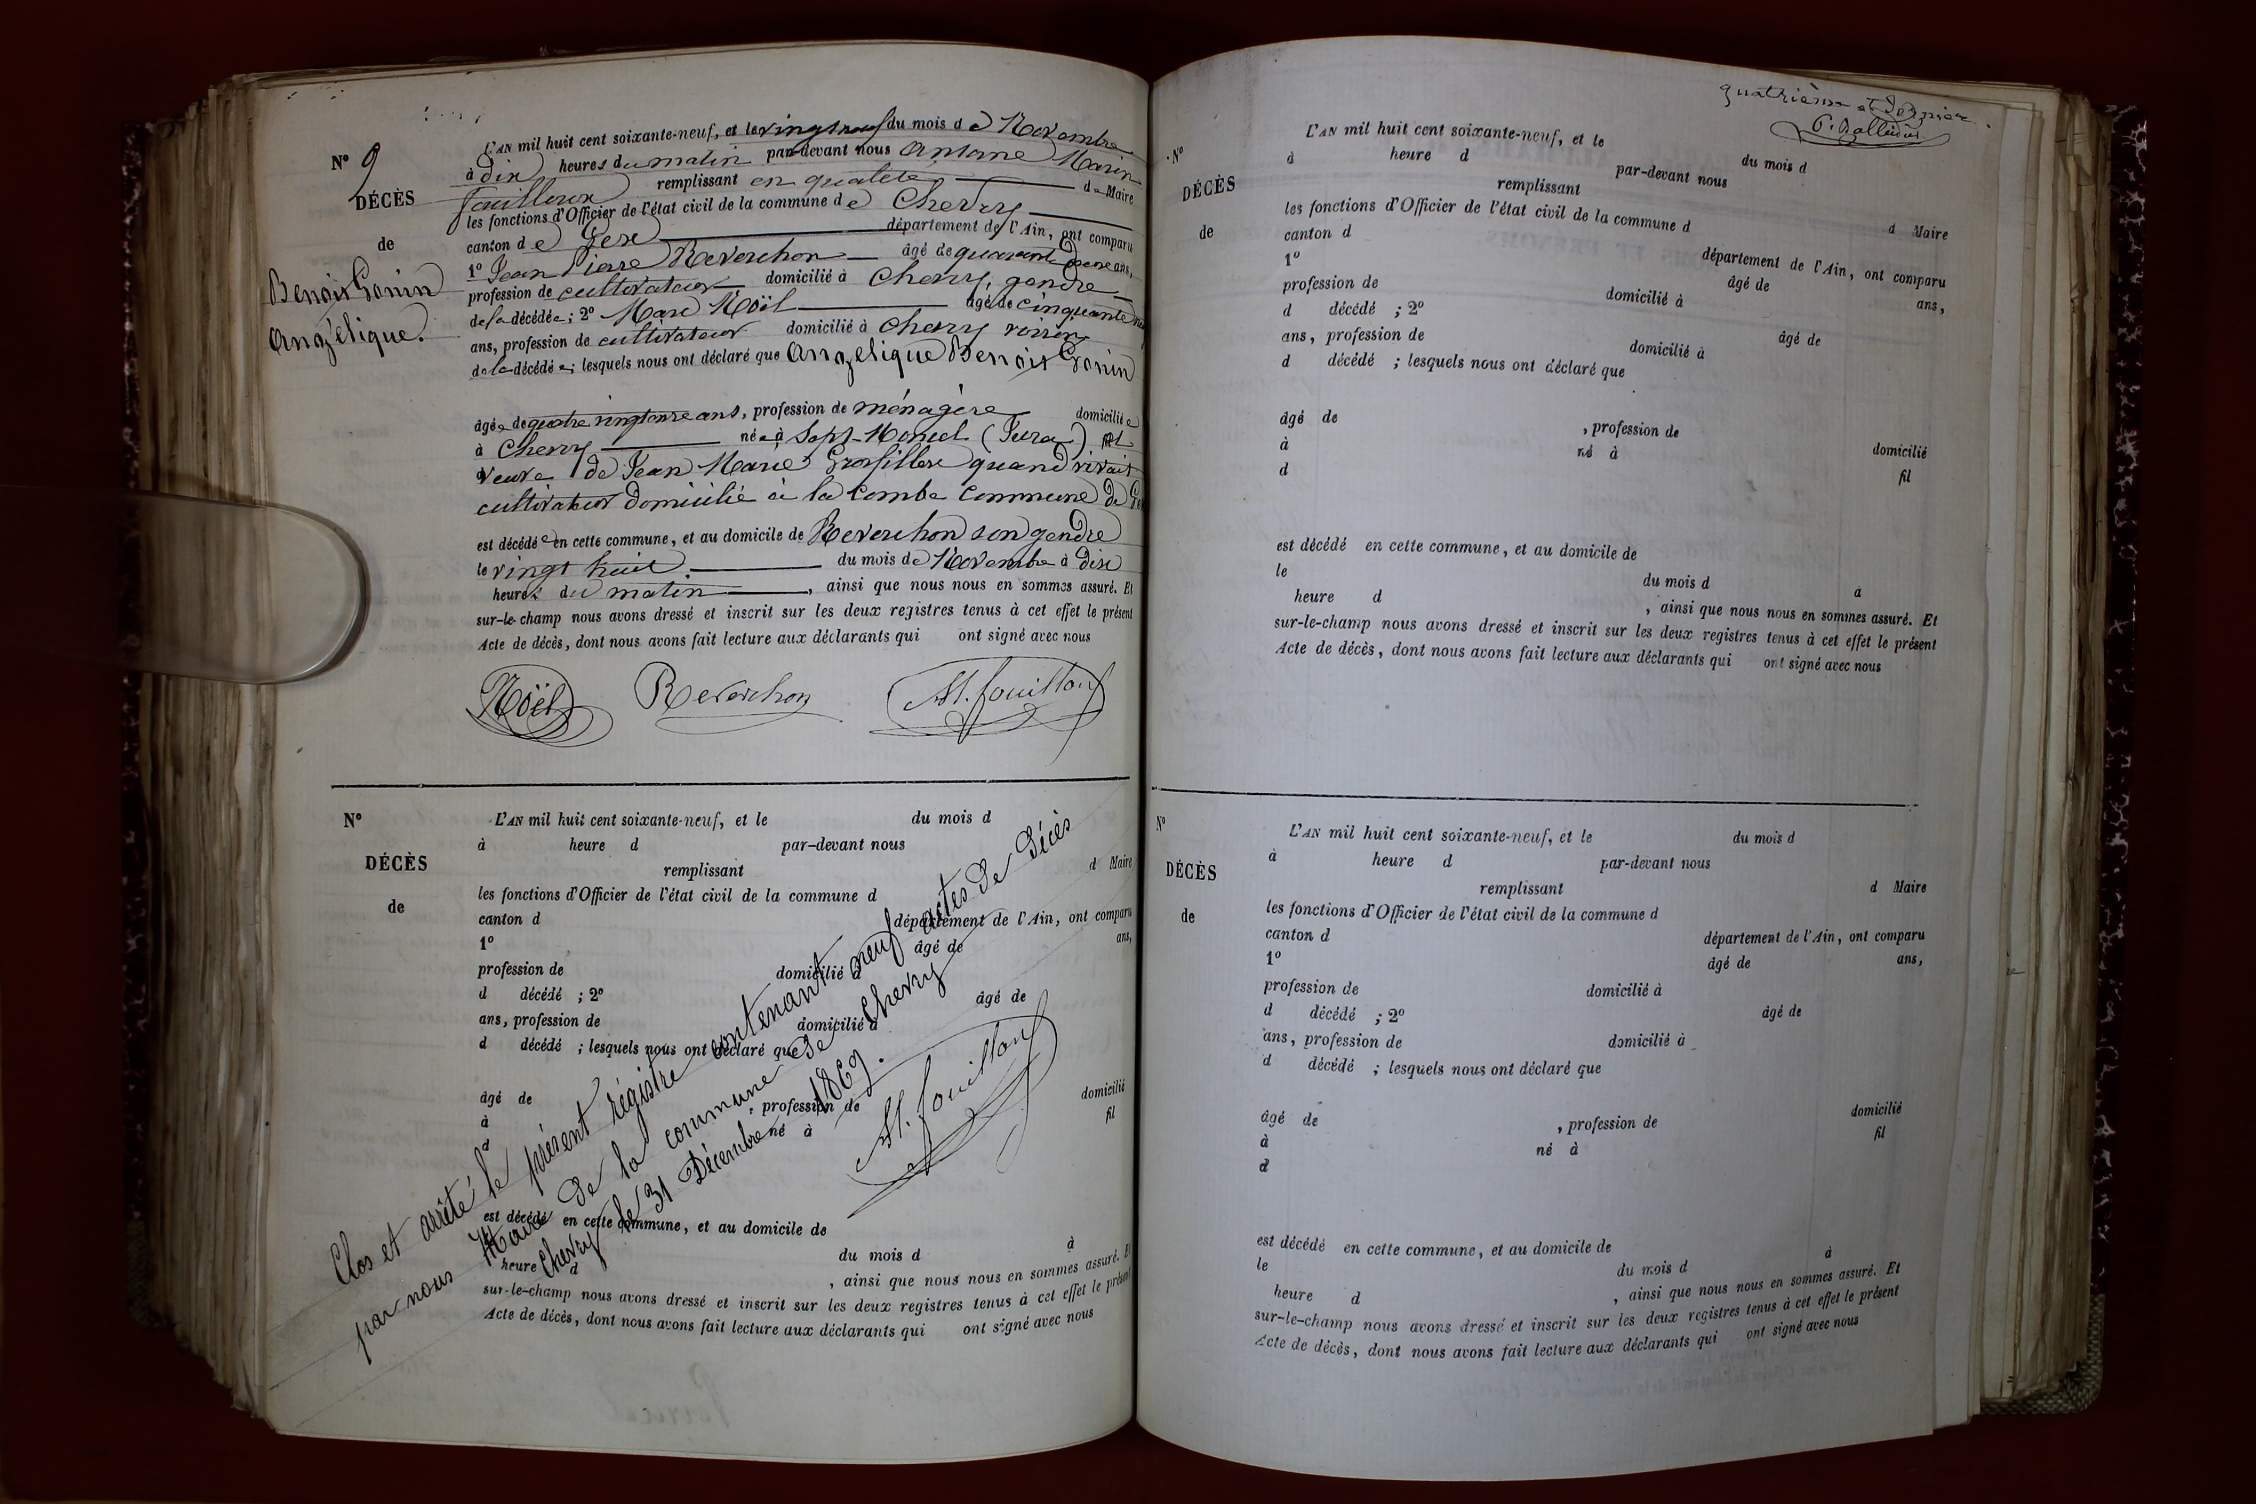 N° 9
DÉCÈS
de
Benoit Gonin
Angélique.
L'AN mil huit cent soixante-neuf, et le vingt neuf du mois de Novembre
à dix heures du matin par-devant nous Antoine Marin
Fouilloux remplissant en qualité de Maire
les fonctions d'Officier de l'état civil de la commune de Chevry
canton de Gex département de l'Ain, ont comparu
1° Jean Pierre Reverchon âgé de quarante ans,
profession de cultivateur domicilié à Chevry, gendre
de la décédée; 2° Marc Noël âgé de cinquante
ans, profession de cultivateur domicilié à Chevry voisin
de la décédée; lesquels nous ont déclaré que Angélique Benoit Gonin
âgée de quatre vingt onze ans, profession de ménagère domiciliée
à Chevry née à Sept-Moncel (Jura) et
veuve de Jean Marie Grosfillex quand vivait
cultivateur domicilié à la Combe commune de
est décédée en cette commune, et au domicile de Reverchon son gendre
le vingt huit du mois de Novembre à dix
heures du matin, ainsi que nous nous en sommes assuré. Et
sur-le-champ nous avons dressé et inscrit sur les deux registres tenus à cet effet le présent
Acte de décès, dont nous avons fait lecture aux déclarants qui ont signé avec nous
Noël Reverchon M. Fouilloux
N°
DÉCÈS
de
L'AN mil huit cent soixante-neuf, et le du mois d
à heure d par-devant nous
remplissant d Maire
les fonctions d'Officier de l'état civil de la commune d
canton d département de l'Ain, ont comparu
1° âgé de ans,
profession de domicilié à
d décédé ; 2° âgé de
ans, profession de domicilié à
d décédé ; lesquels nous ont déclaré que
âgé de , profession de domicilié
à né à fil
d
est décédé en cette commune, et au domicile de
le du mois d à
heure d , ainsi que nous nous en sommes assuré. Et
sur-le-champ nous avons dressé et inscrit sur les deux registres tenus à cet effet le présent
Acte de décès, dont nous avons fait lecture aux déclarants qui ont signé avec nous
Clos et arrêté le présent régistre contenant neuf actes de Décès
par nous Maire de la commune de Chevry
Chevry le 31 Décembre 1869.
M. Fouilloux
quatrième et dernier.
N°
DÉCÈS
de
L'AN mil huit cent soixante-neuf, et le du mois d
à heure d par-devant nous
remplissant d Maire
les fonctions d'Officier de l'état civil de la commune d
canton d département de l'Ain, ont comparu
1° âgé de ans,
profession de domicilié à
d décédé ; 2° âgé de
ans, profession de domicilié à
d décédé ; lesquels nous ont déclaré que
âgé de , profession de domicilié
à né à fil
d
est décédé en cette commune, et au domicile de
le du mois d à
heure d , ainsi que nous nous en sommes assuré. Et
sur-le-champ nous avons dressé et inscrit sur les deux registres tenus à cet effet le présent
Acte de décès, dont nous avons fait lecture aux déclarants qui ont signé avec nous
N°
DÉCÈS
de
L'AN mil huit cent soixante-neuf, et le du mois d
à heure d par-devant nous
remplissant d Maire
les fonctions d'Officier de l'état civil de la commune d
canton d département de l'Ain, ont comparu
1° âgé de ans,
profession de domicilié à
d décédé ; 2° âgé de
ans, profession de domicilié à
d décédé ; lesquels nous ont déclaré que
âgé de , profession de domicilié
à né à fil
d
est décédé en cette commune, et au domicile de
le du mois d à
heure d , ainsi que nous nous en sommes assuré. Et
sur-le-champ nous avons dressé et inscrit sur les deux registres tenus à cet effet le présent
Acte de décès, dont nous avons fait lecture aux déclarants qui ont signé avec nous